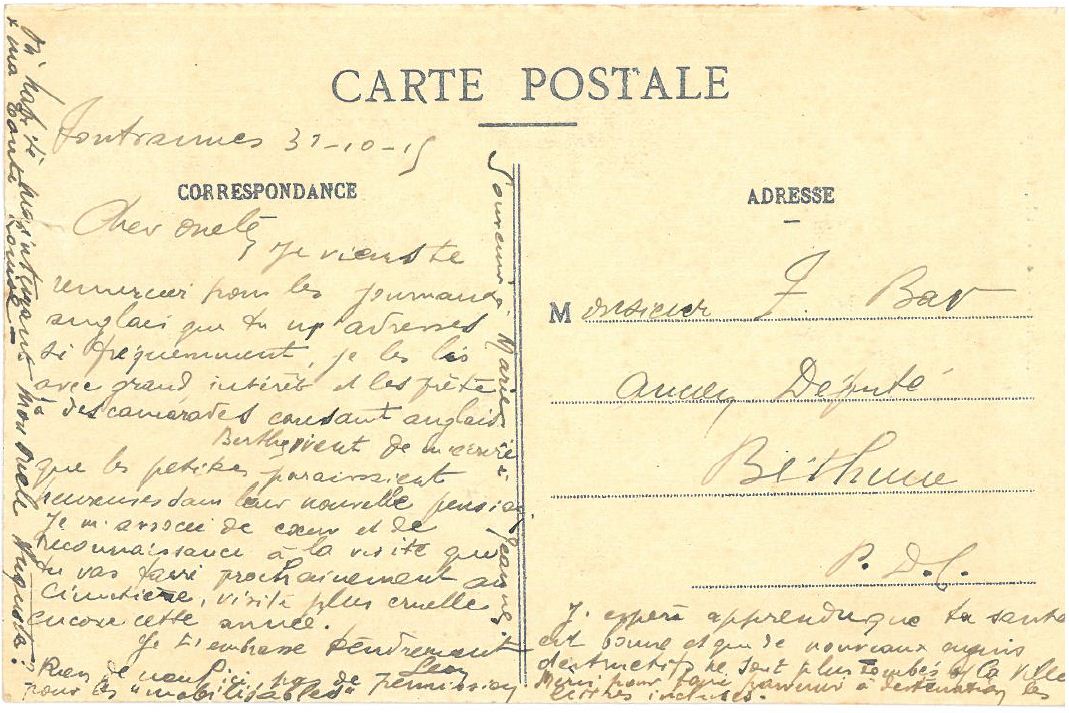 CARTE POSTALE
31-10-15
CORRESPONDANCE
Cher oncle,
Je viens te
remercier pour les journaux
anglais que tu m'adresses
si fréquemment, je les lis
avec grand intérêt et les prête
à des camarades causant anglais
Berthe vient de m'écrire
que les petites paraissaient
heureuses dans leur nouvelle pension
Je m'associe de cœur et de
reconnaissance à la visite que
tu vas faire prochainement au
cimetière, visite plus cruelle
encore cette année.
Je t'embrasse tendrement
Léon
Rien de neuf ici, pas de permission
pour les "mobilisables"
Où habite maintenant mon oncle Auguste?
& ma tante Louise –
Souvenir à Marie & à Jeanne.
ADRESSE
Monsieur F. Bar
Ancien Député
Béthune
P. D. C.
J'espère apprendre que ta santé
est bonne et que de nouveaux engins
destructifs ne sont plus tombés s/ la ville
Merci pour faire parvenir à destination les
lettres incluses.